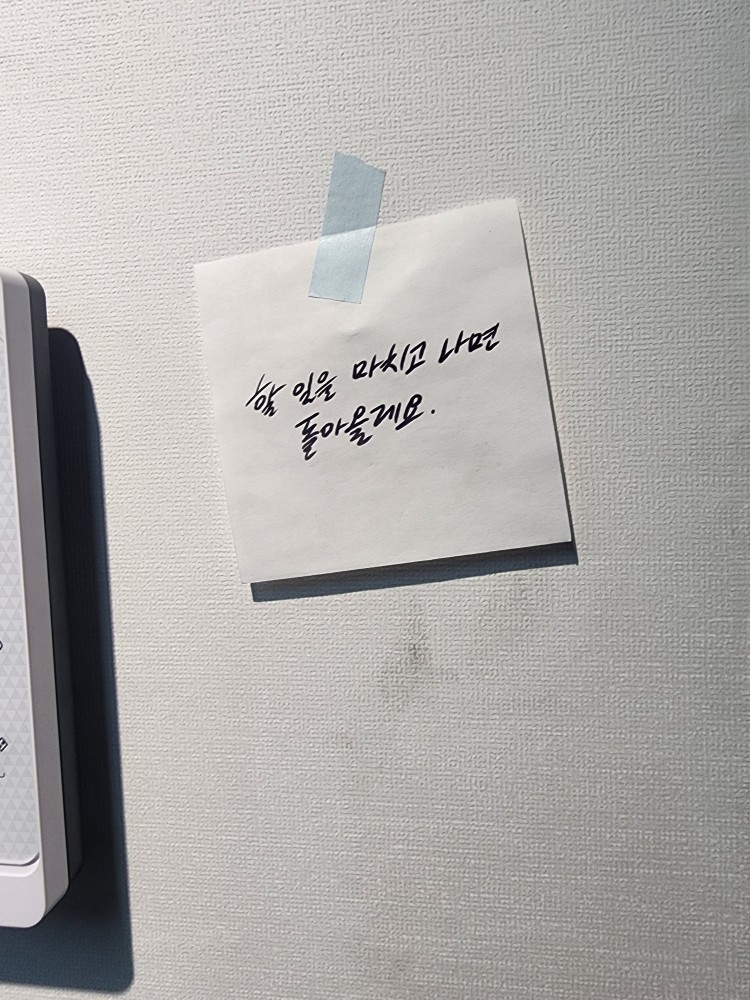 할 일을 마치고 나면
돌아올게요.